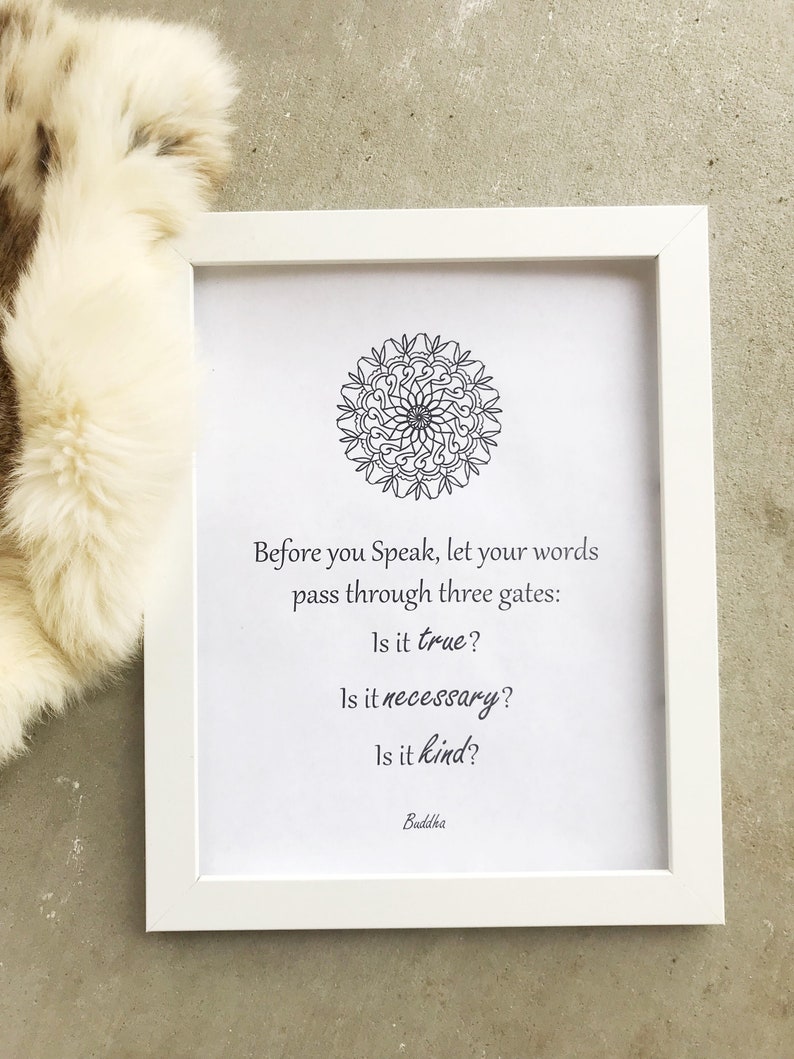 Before you Speak, let your words
pass through three gates:
Is it true?
Is it necessary?
Is it kind?
Buddha